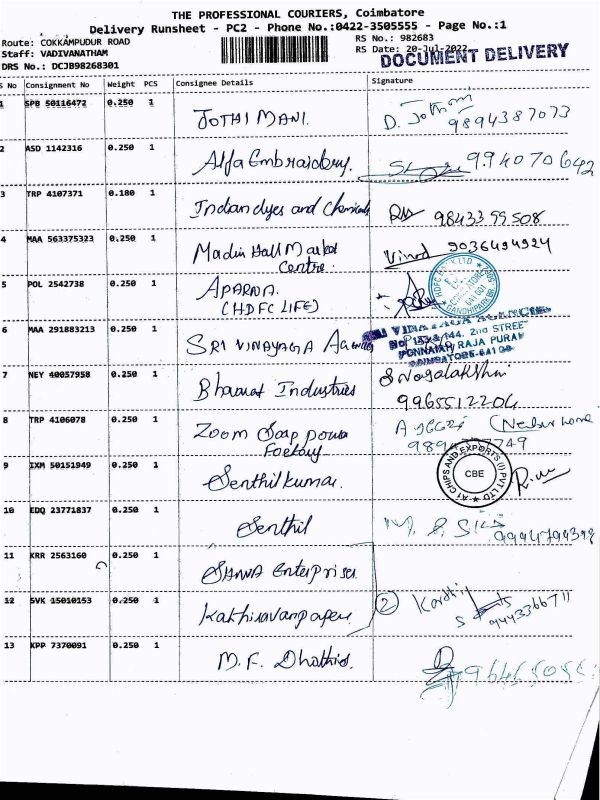 THE PROFESSIONAL COURIERS, Coimbatore
Delivery Runsheet - PC2 - Phone No.:0422-3505555 - Page No.:1
Route: COKKAMPUDUR ROAD
RS No.: 982683
Staff: VADIVANATHAM
RS Date: 20-Jul-2022
DOCUMENT DELIVERY
DRS No.: DCJB98268301
S No Consignment No Weight PCS Consignee Details Signature
1 SPB 50116472 0.250 1 JOTHI MANI. D. Jothi 9894387073
2 ASD 1142316 0.250 1 Alfa Embroidery. 994070642
3 TRP 4107371 0.180 1 Indian dyes and chemicals 9843359508
4 MAA 563375323 0.250 1 Madin Hall Market Centre. Vinod 9036494924
5 POL 2542738 0.250 1 APARNA. (HDFC LIFE)
6 MAA 291883213 0.250 1 SRI VINAYAGA Agencies
SRI VINAYAGA AGENCIES
2nd STREET
PONNAIAH RAJA PURAM
COIMBATORE-641 001
7 NEY 40057958 0.250 1 Bharat Industries S Nagalakshmi 9965512204
8 TRP 4106078 0.250 1 Zoom Soap powder Factory
9 IXM 50151949 0.250 1 Senthil kumar.
A1 CHIPS AND EXPORTS (I) PVT LTD
CBE
10 EDQ 23771837 0.250 1 Senthil
11 KRR 2563160 0.250 1 Enterprises
12 SVK 15010153 0.250 1 Kathiravan papers 2 Karthi 9443366711
13 KPP 7370091 0.250 1 M.F. Dhothis.